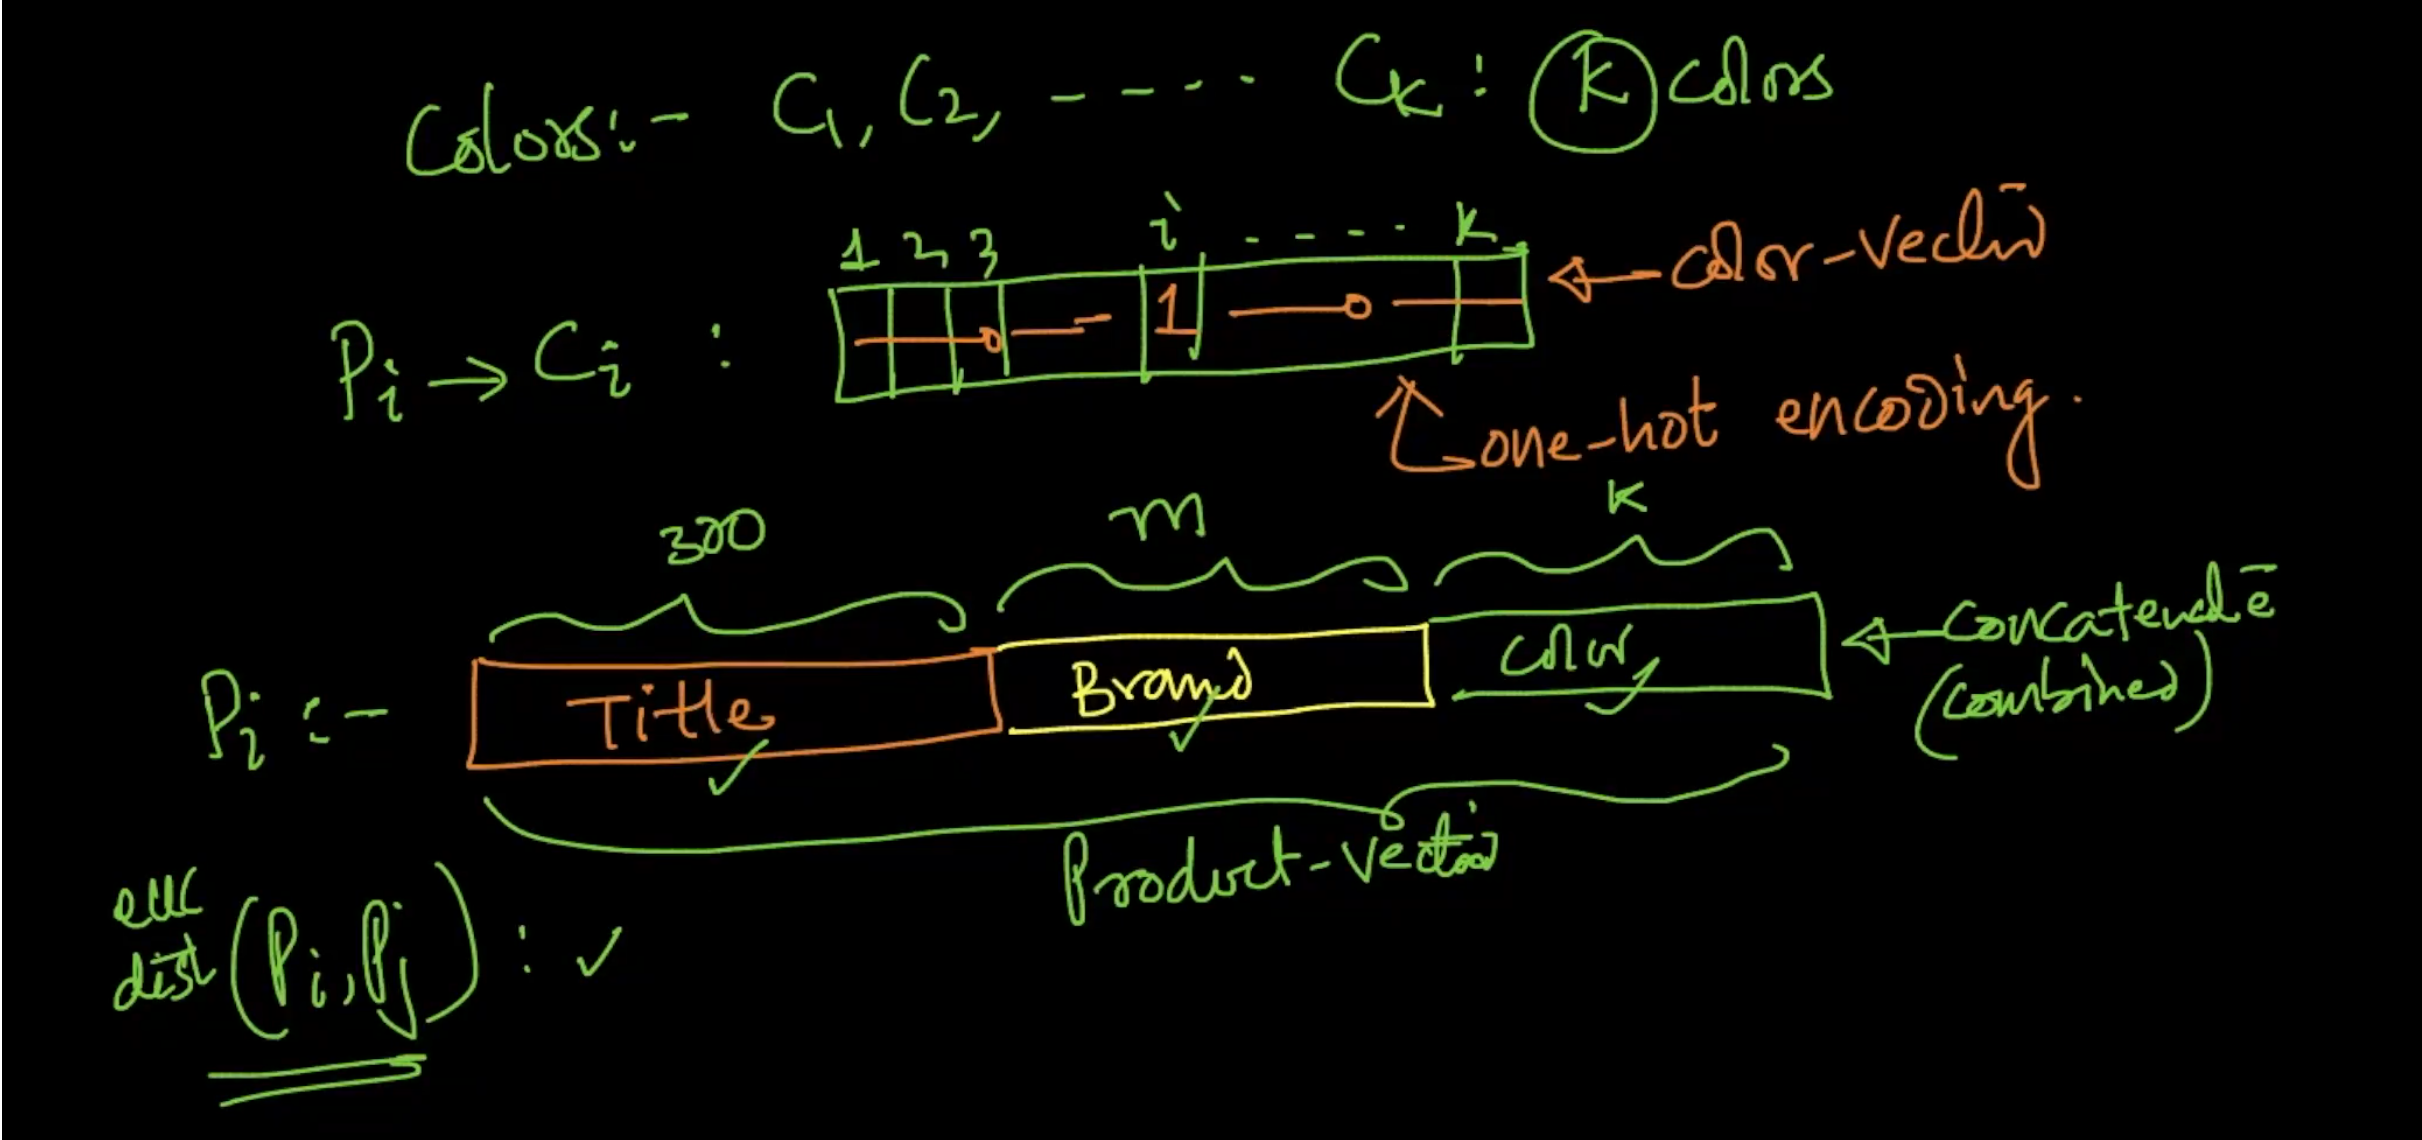 Colors:- C1, C2, ----- Ck : K colors
1 2 3 i ---- k
Pi → Ci : 0 1 0 ← color-vector
one-hot encoding.
300 m K
Pi :- Title Brand color ← concatenate
(combined)
Product-vector
euc
dist (Pi, Pj) : ✓